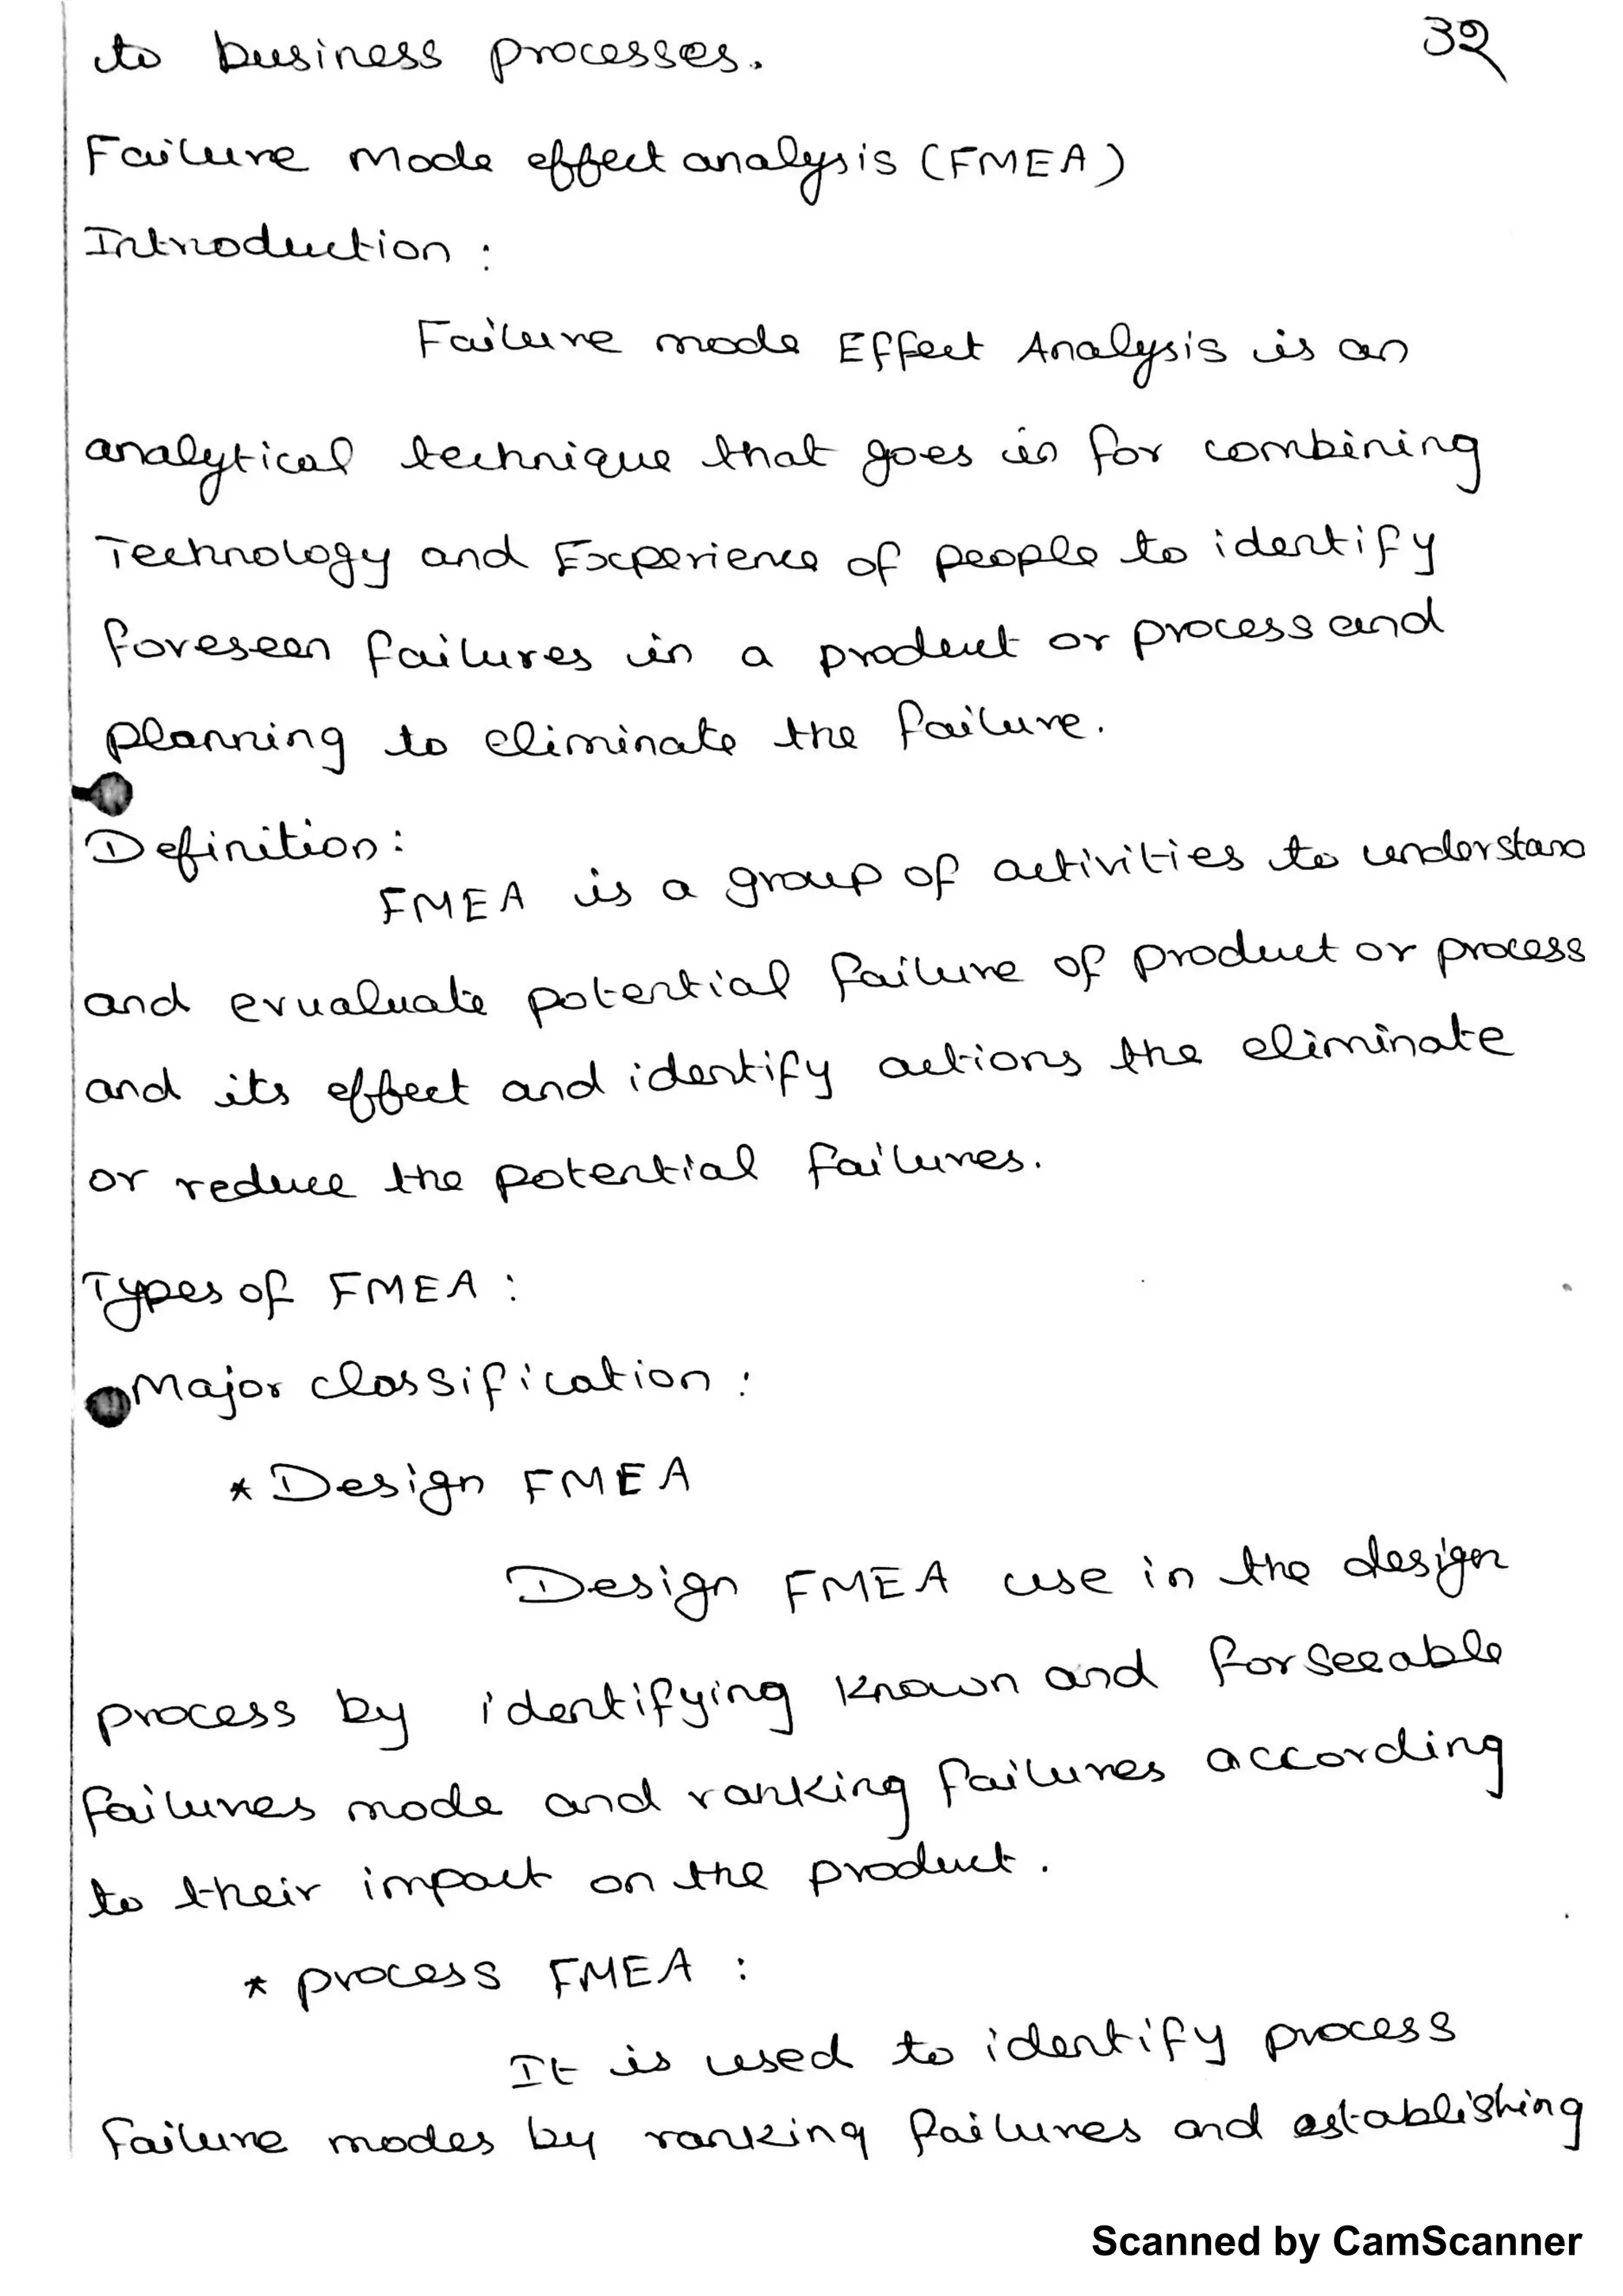 to business processes.
32
Failure Mode effect analysis (FMEA)
Introduction :
Failure mode Effect Analysis is an
analytical technique that goes in for combining
Technology and Experience of people to identify
foreseen failures in a product or process and
planning to eliminate the failure.
Definition :
FMEA is a group of activities to understand
and evualuate potential failure of product or process
and its effect and identify actions the eliminate
or reduce the potential failures.
Types of FMEA :
Major classification :
* Design FMEA
Design FMEA use in the design
process by identifying known and forseeable
failures mode and ranking failures according
to their impact on the product.
* process FMEA :
It is used to identify process
failure modes by ranking failures and establishing
Scanned by CamScanner